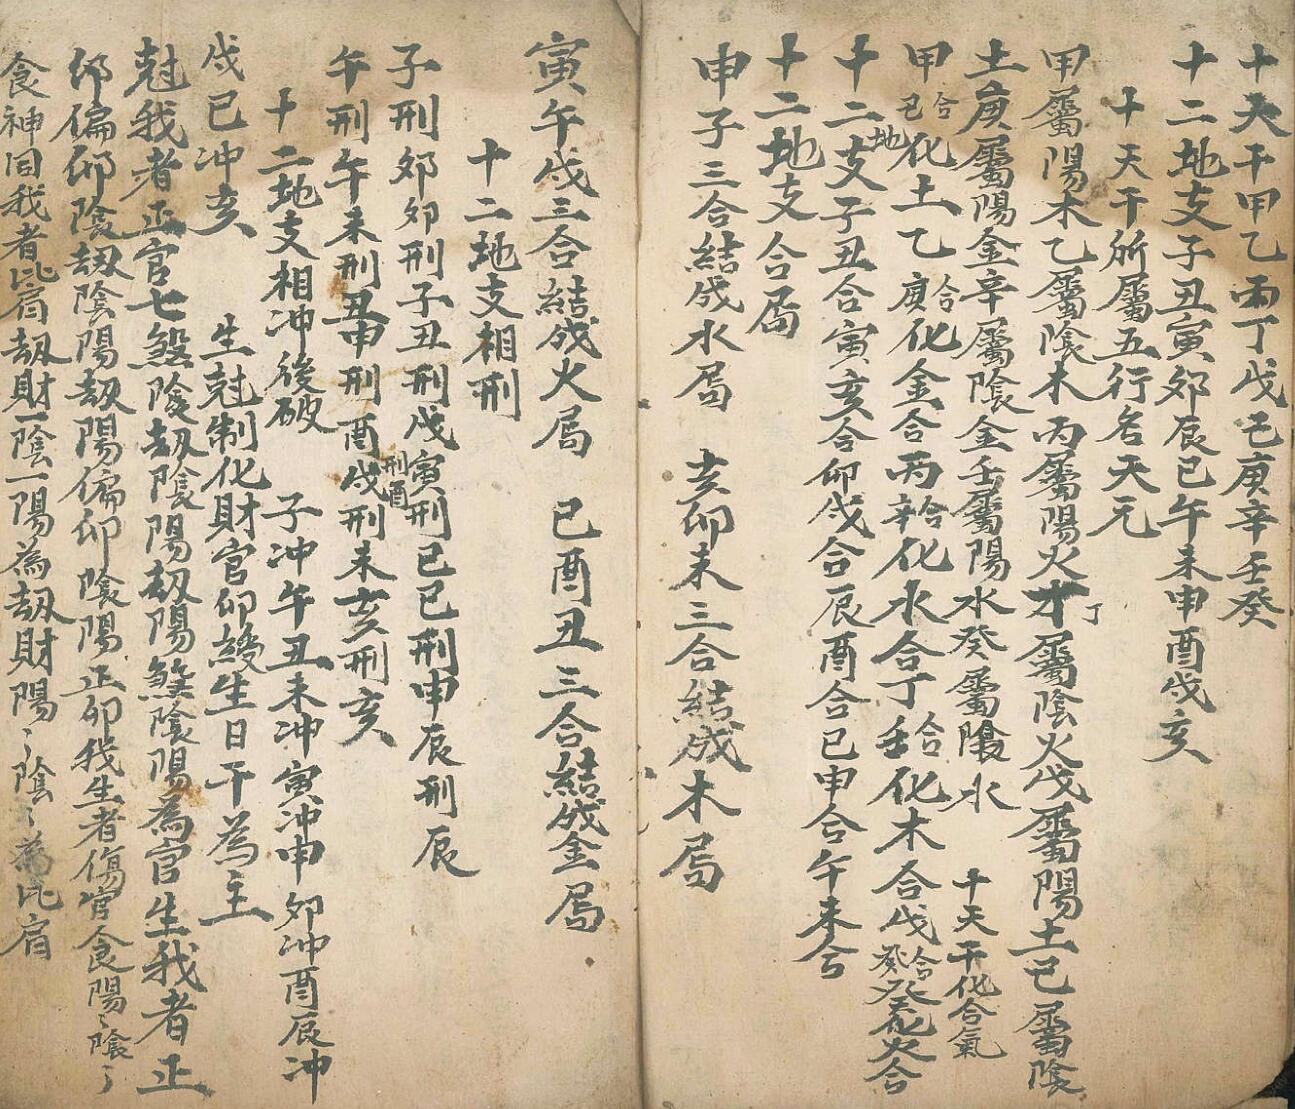 十天干甲乙丙丁戊己庚辛壬癸
十二地支子丑寅卯辰巳午未申酉戌亥
十天干所屬五行名天元
甲屬陽木乙屬陰木丙屬陽火丁屬陰火戊屬陽土己屬陰
土庚屬陽金辛屬陰金壬屬陽水癸屬陰水 十天干化合氣
甲己合化土乙庚合化金合丙辛合化水合丁壬合化木合戊癸合癸化火合
十二地支子丑合寅亥合卯戌合辰酉合巳申合午未合
十二地支合局
申子三合結成水局 亥卯未三合結成木局
寅午戌三合結成火局 巳酉丑三合結成金局
十二地支相刑
子刑卯卯刑子丑刑戌寅刑巳巳刑申辰刑辰
午刑午未刑丑申刑酉戌刑酉刑未亥刑亥
十二地支相冲後破 子冲午丑未冲寅冲申卯冲酉辰冲
戌巳冲亥 生尅制化財官印綬生日干為主
尅我者正官七煞陰刼陰陽刼陽煞陰陽為官生我者正
印偏印陰刼陰陽刼陽偏印陰陽正印我生者傷官食陽〻陰〻
食神同我者比肩刼財一陰一陽為刼財陽〻陰〻為比肩